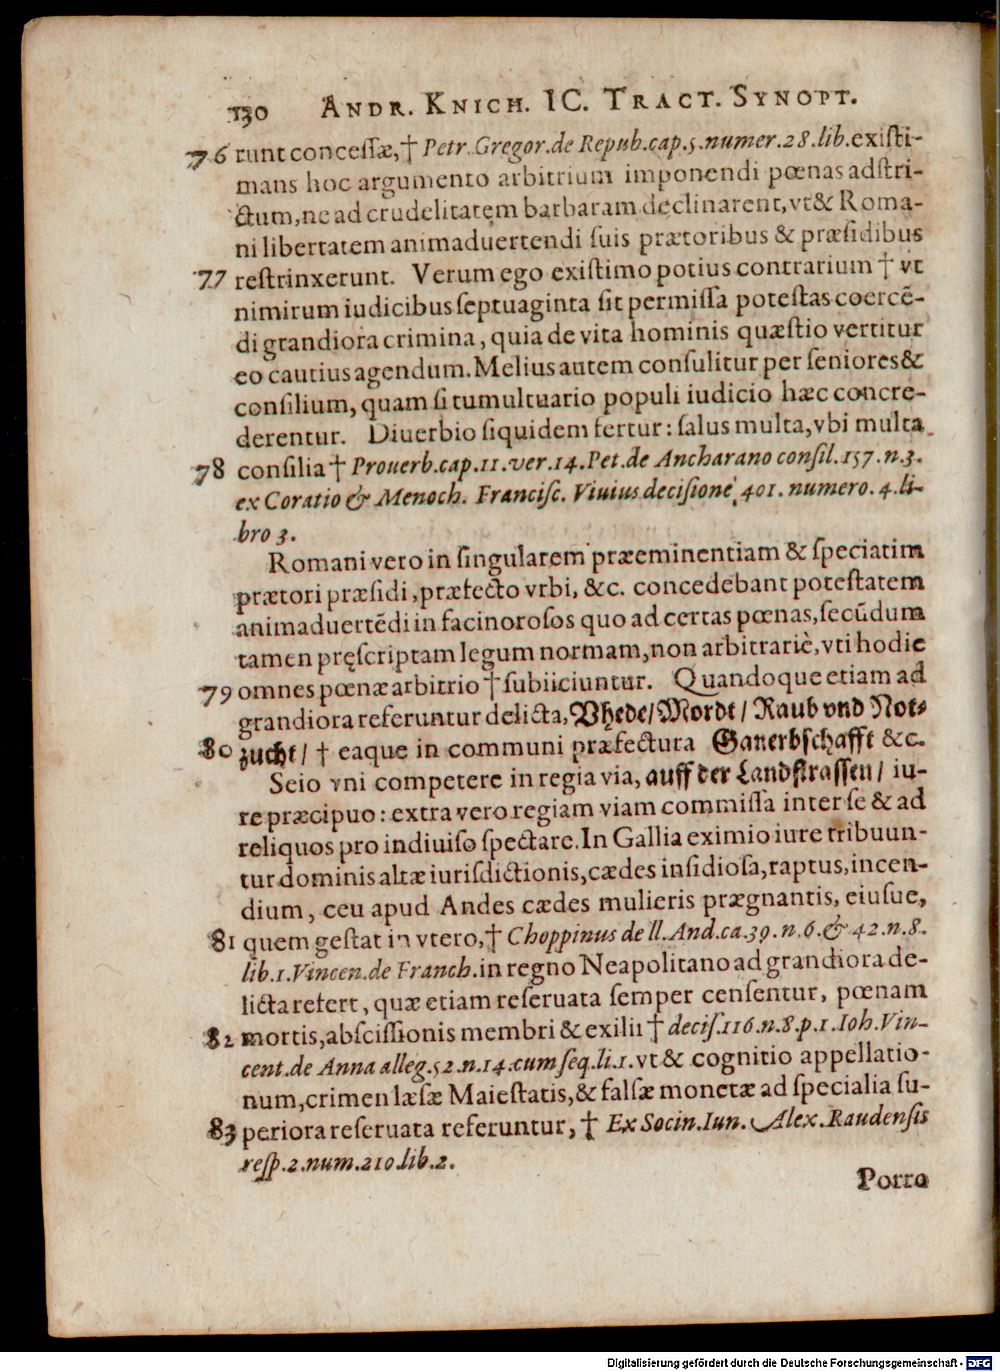 130 ANDR. KNICH. IC. TRACT. SYNOPT.
76 runt concessæ,† Petr. Gregor. de Repub. cap. 5. numer. 28. lib. existi-
mans hoc argumento arbitrium imponendi pœnas adstri-
ctum, ne ad crudelitatem barbaram declinarent, vt & Roma-
ni libertatem animaduertendi suis prætoribus & præsidibus
77 restrinxerunt. Verum ego existimo potius contrarium † vt
nimirum iudicibus septuaginta sit permissa potestas coercẽ-
di grandiora crimina, quia de vita hominis quæstio vertitur
eo cautius agendum. Melius autem consulitur per seniores &
consilium, quam si tumultuario populi iudicio hæc concre-
derentur. Diuerbio siquidem fertur: salus multa, vbi multa
78 consilia † Prouerb. cap. 11. ver. 14. Pet. de Ancharano consil. 157. n. 3.
ex Coratio & Menoch. Francisc. Viuius decisione 401. numero. 4. li-
bro 3.
Romani vero in singularem præeminentiam & speciatim
prætori præsidi, præfecto vrbi, &c. concedebant potestatem
animaduertẽdi in facinorosos quo ad certas pœnas, secũdum
tamen pręscriptam legum normam, non arbitrariè, vti hodie
79 omnes pœnæ arbitrio † subiiciuntur. Quandoque etiam ad
grandiora referuntur delicta, Vhede/ Mordt/ Raub vnd Not-
80 zucht/ † eaque in communi præfectura Ganerbschafft &c.
Seio vni competere in regia via, auff der Landstrassen/ iu-
re præcipuo: extra vero regiam viam commissa inter se & ad
reliquos pro indiuiso spectare. In Gallia eximio iure tribuun-
tur dominis altæ iurisdictionis, cædes insidiosa, raptus, incen-
dium, ceu apud Andes cædes mulieris prægnantis, eiusue,
81 quem gestat in vtero,† Choppinus de ll. And. ca. 39. n. 6. & 42. n. 8.
lib. 1. Vincen. de Franch. in regno Neapolitano ad grandiora de-
licta refert, quæ etiam reseruata semper censentur, pœnam
82 mortis, abscissionis membri & exilii † decis. 116. n. 8. p. 1. Ioh. Vin-
cent. de Anna alleg. 52. n. 14. cum seq. li. 1. vt & cognitio appellatio-
num, crimen læsæ Maiestatis, & falsæ monetæ ad specialia su-
83 periora reseruata referuntur, † Ex Socin. Iun. Alex. Raudensis
resp. 2. num. 210. lib. 2.
Porro
Digitalisierung gefördert durch die Deutsche Forschungsgemeinschaft - DFG